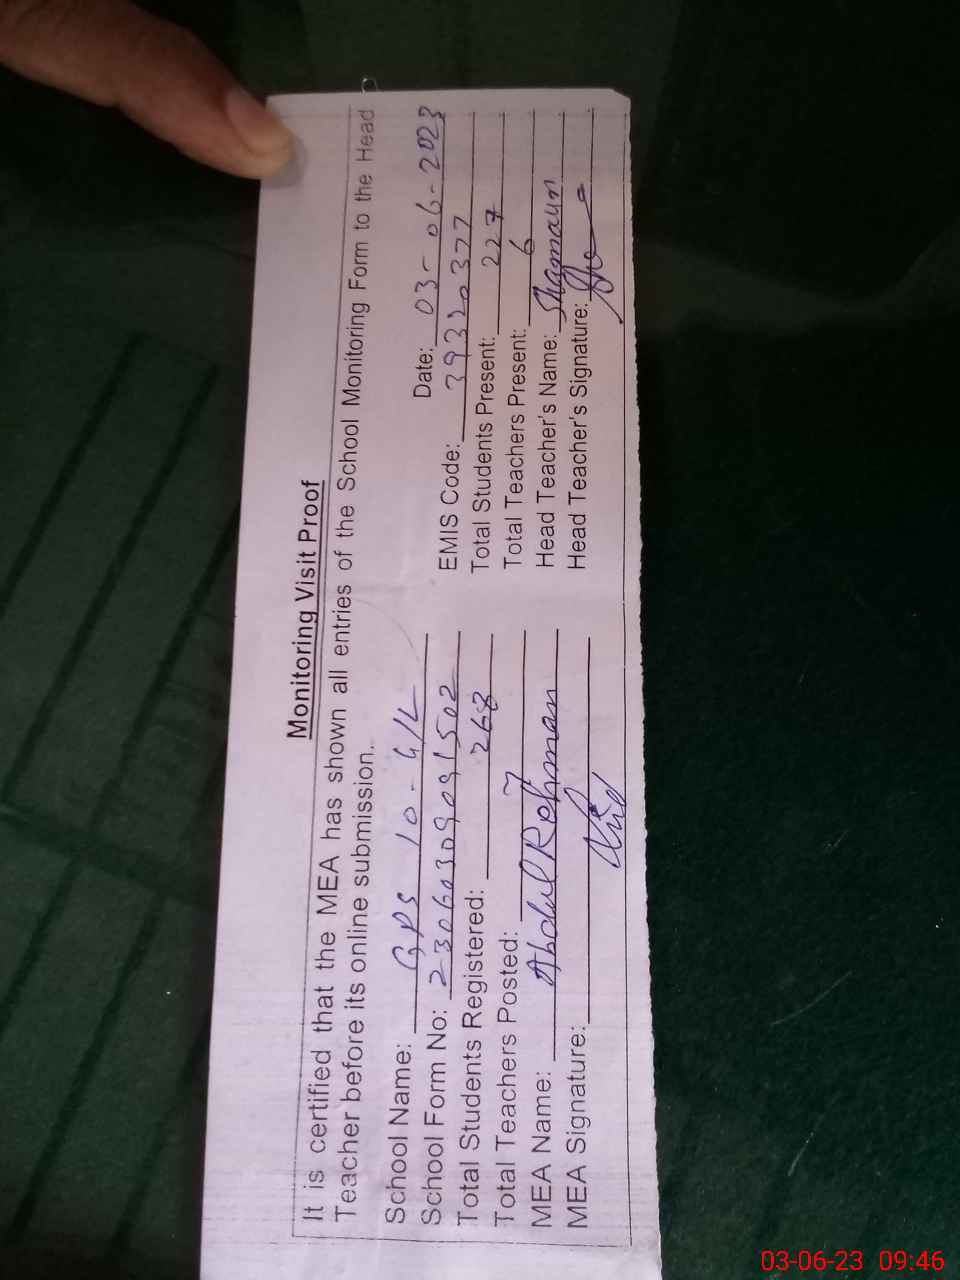 Monitoring Visit Proof
It is certified that the MEA has shown all entries of the School Monitoring Form to the Head
Teacher before its online submission.
Date: 03-06-2023
School Name: GPS 10-4/L
EMIS Code: 39320377
School Form No: 23060309091502
Total Students Present: 227
Total Students Registered: 268
Total Teachers Present: 6
Total Teachers Posted: 7
Head Teacher's Name: Shamaun
MEA Name: Abdul Rehman
Head Teacher's Signature:
MEA Signature:
03-06-23 09:46